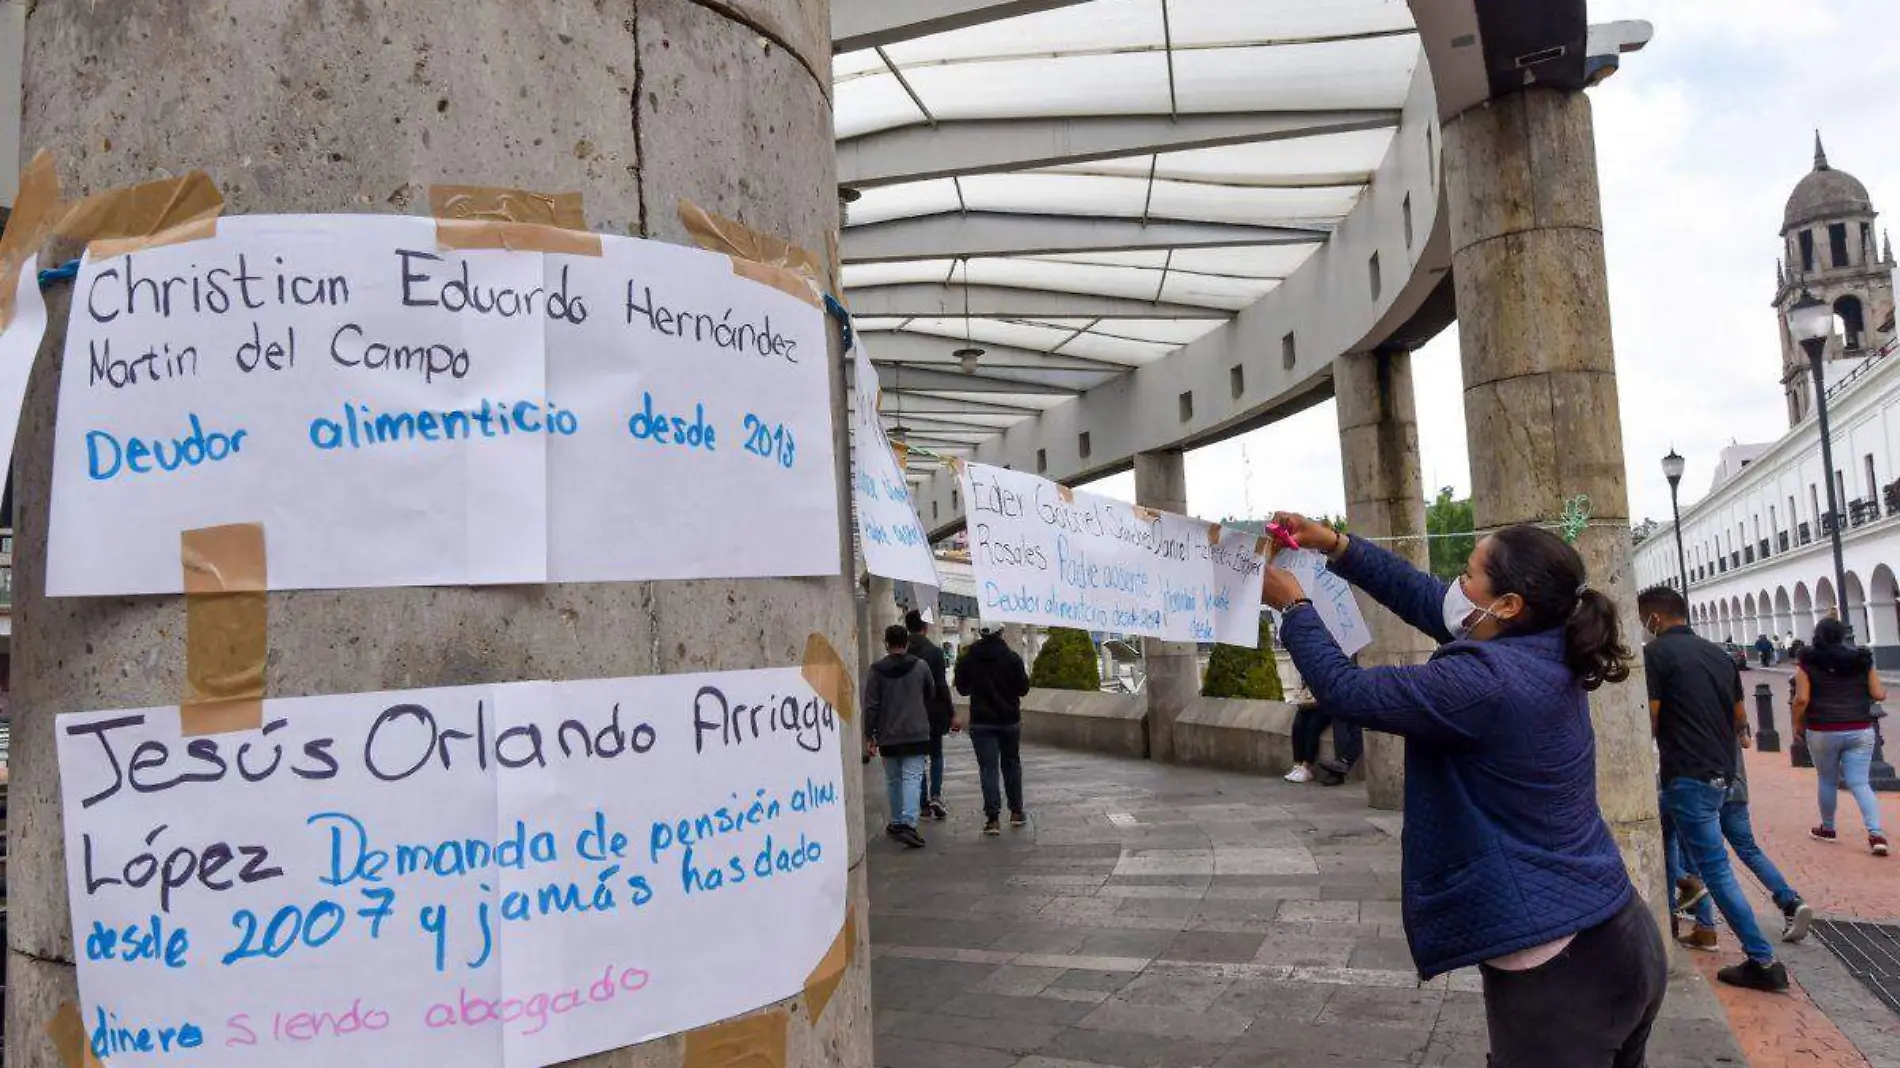 Christian Eduardo Hernández
Martin del Campo
Deudor alimenticio desde 2013
Jesús Orlando Arriaga
López Demanda de pensión alim.
desde 2007 y jamás has dado
dinero siendo abogado
Eder Gabriel Sánchez
Rosales Padre ausente
Deudor alimenticio desde
Daniel
desde